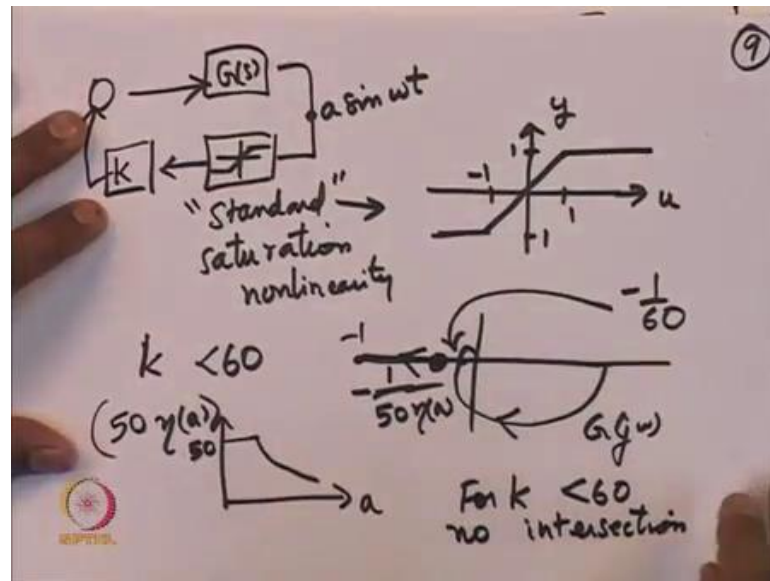 9
G(s)
a sin wt
k
"Standard"
saturation
nonlinearity
y
1
-1
1
u
-1
k < 60
-1
-1/60
-1/50η(a)
G(jω)
(50 η(a))
50
a
For k < 60
no intersection
NPTEL